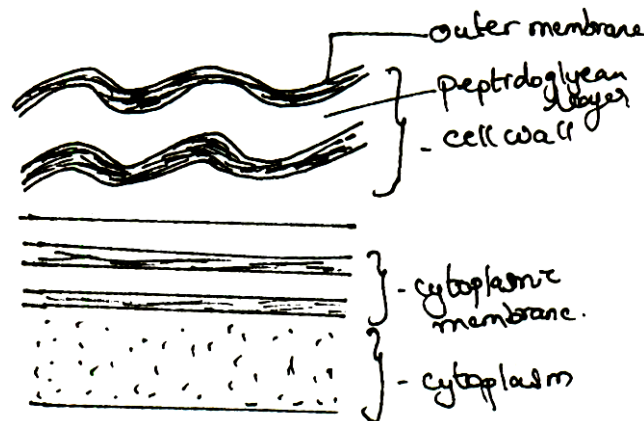 outer membrane
peptidoglycan
layer
- cell wall
- cytoplasmic
membrane.
- cytoplasm